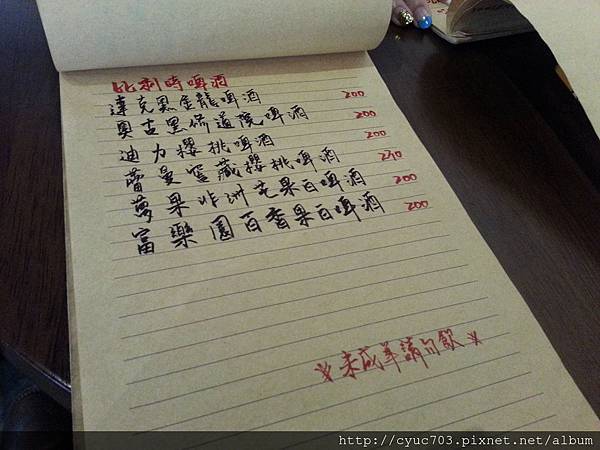 比利時啤酒
達克奧金龍啤酒 200
奧古黑修道院啤酒 200
迪力櫻桃啤酒 200
蕾曼窖藏櫻桃啤酒 240
夢果非洲芒果白啤酒 200
富樂園百香果白啤酒 200
※未成年請勿飲※
http://cyuc703.pixnet.net/album